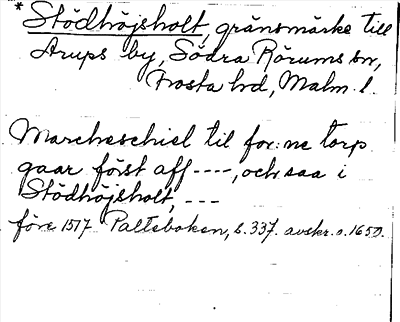 *Stödhöjsholt, gränsmärke till
Arups by, Södra Rörums sn,
Frosta hd, Malm. l.
Marcheschiel til for:ne torp
gaar först aff ----, och saa i
Stödhöjsholt, ---
före 1517 Palteboken, s. 337. avskr. o. 1650.